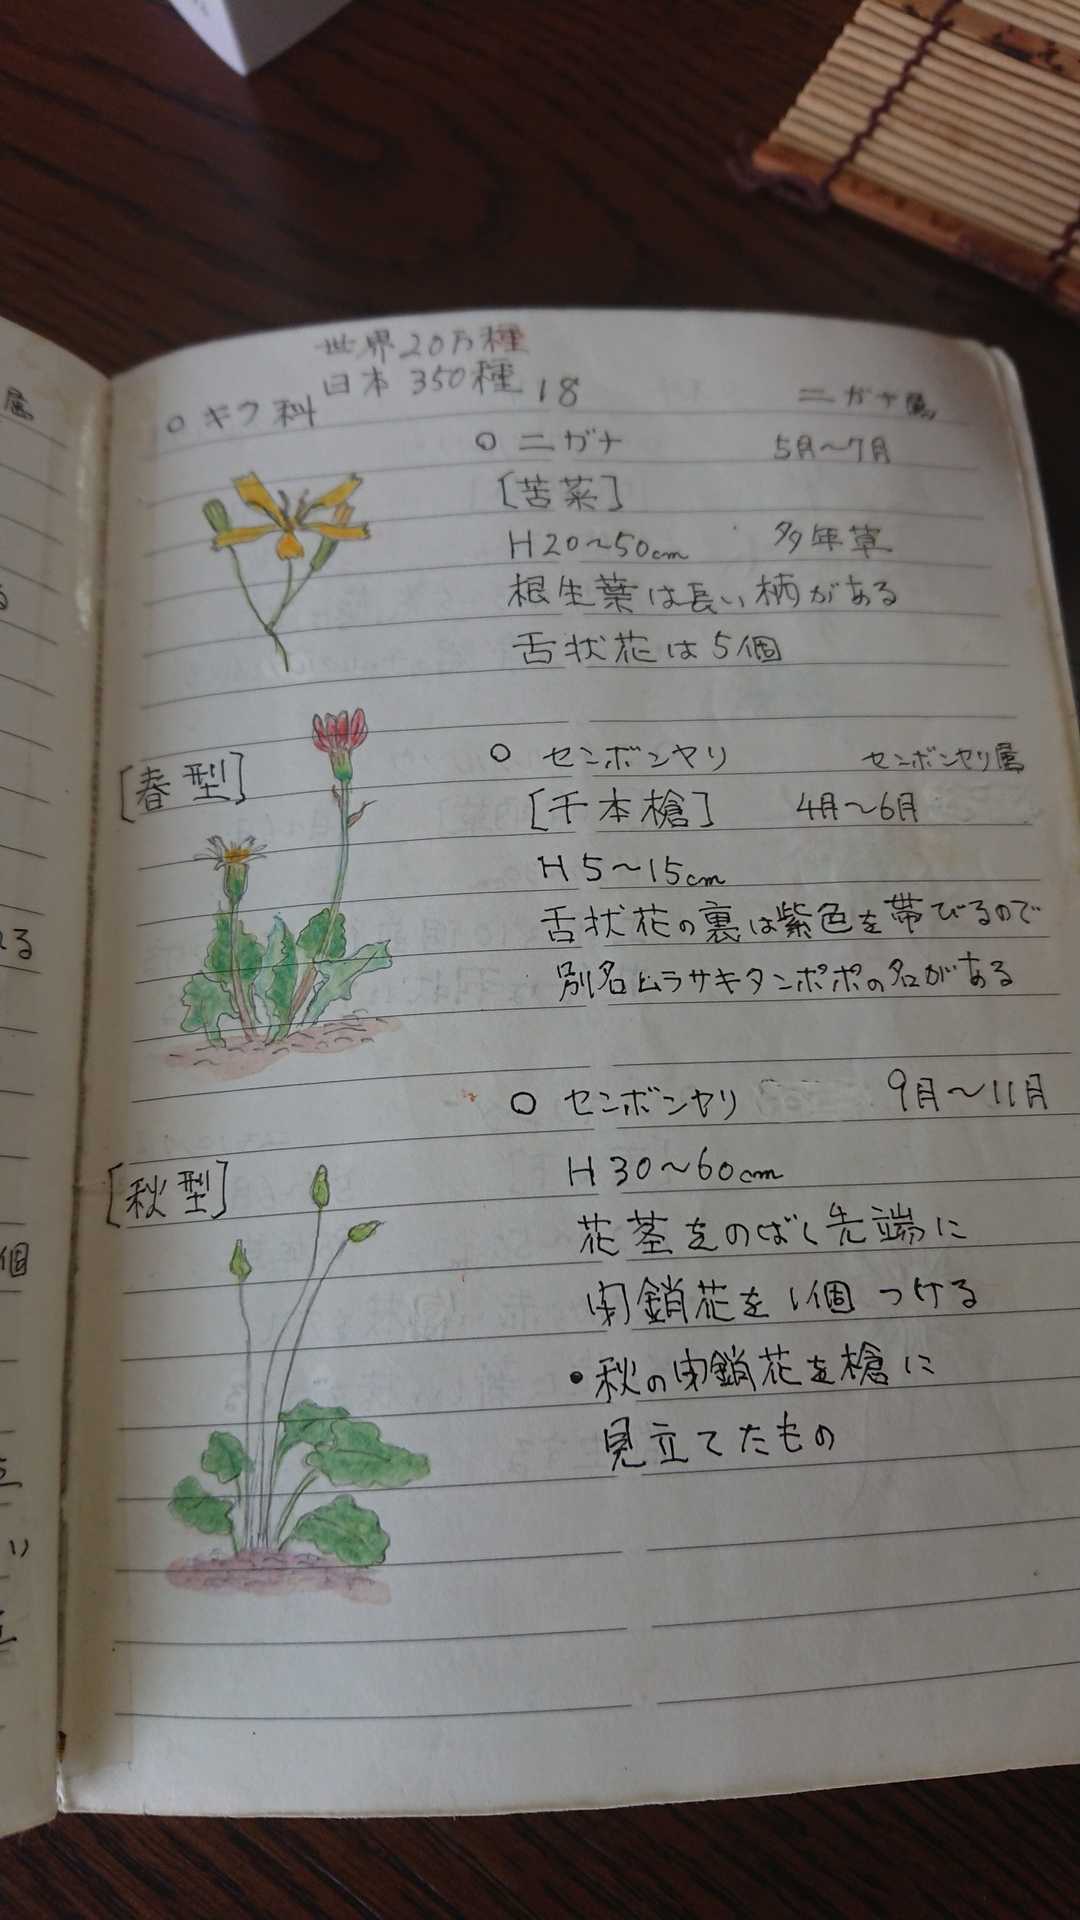 世界20万種
日本 350種 18
○ キク科
ニガナ属
○ ニガナ 5月〜7月
[苦菜]
H20〜50cm 多年草
根生葉は長い柄がある
舌状花は5個
[春型]
○ センボンヤリ センボンヤリ属
[千本槍] 4月〜6月
H5〜15cm
舌状花の裏は紫色を帯びるので
別名ムラサキタンポポの名がある
○ センボンヤリ 9月〜11月
[秋型]
H30〜60cm
花茎をのばし先端に
閉鎖花を1個つける
・秋の閉鎖花を槍に
見立てたもの
属
る
れる
個
い